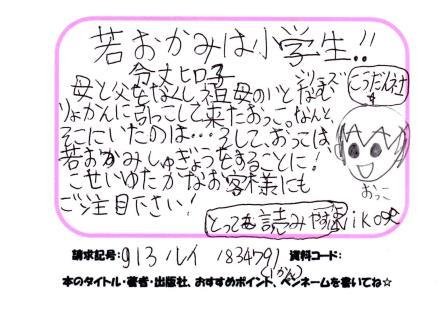 若おかみは小学生!!
令丈ヒロ子
シリーズ
こうだん社
母と父をなくし、祖母のいとなむ
りょかんに引っこして来たおっこ。なんと、
そこにいたのは…そして、おっこは
若おかみしゅぎょうをすることに!
こせいゆたかなお客様にも
ご注目下さい!
おっこ
とってもよみやすい
請求記号: 913 ルイ 1834791 資料コード:
(いかん)
本のタイトル・著者・出版社、おすすめポイント、ペンネームを書いてね☆